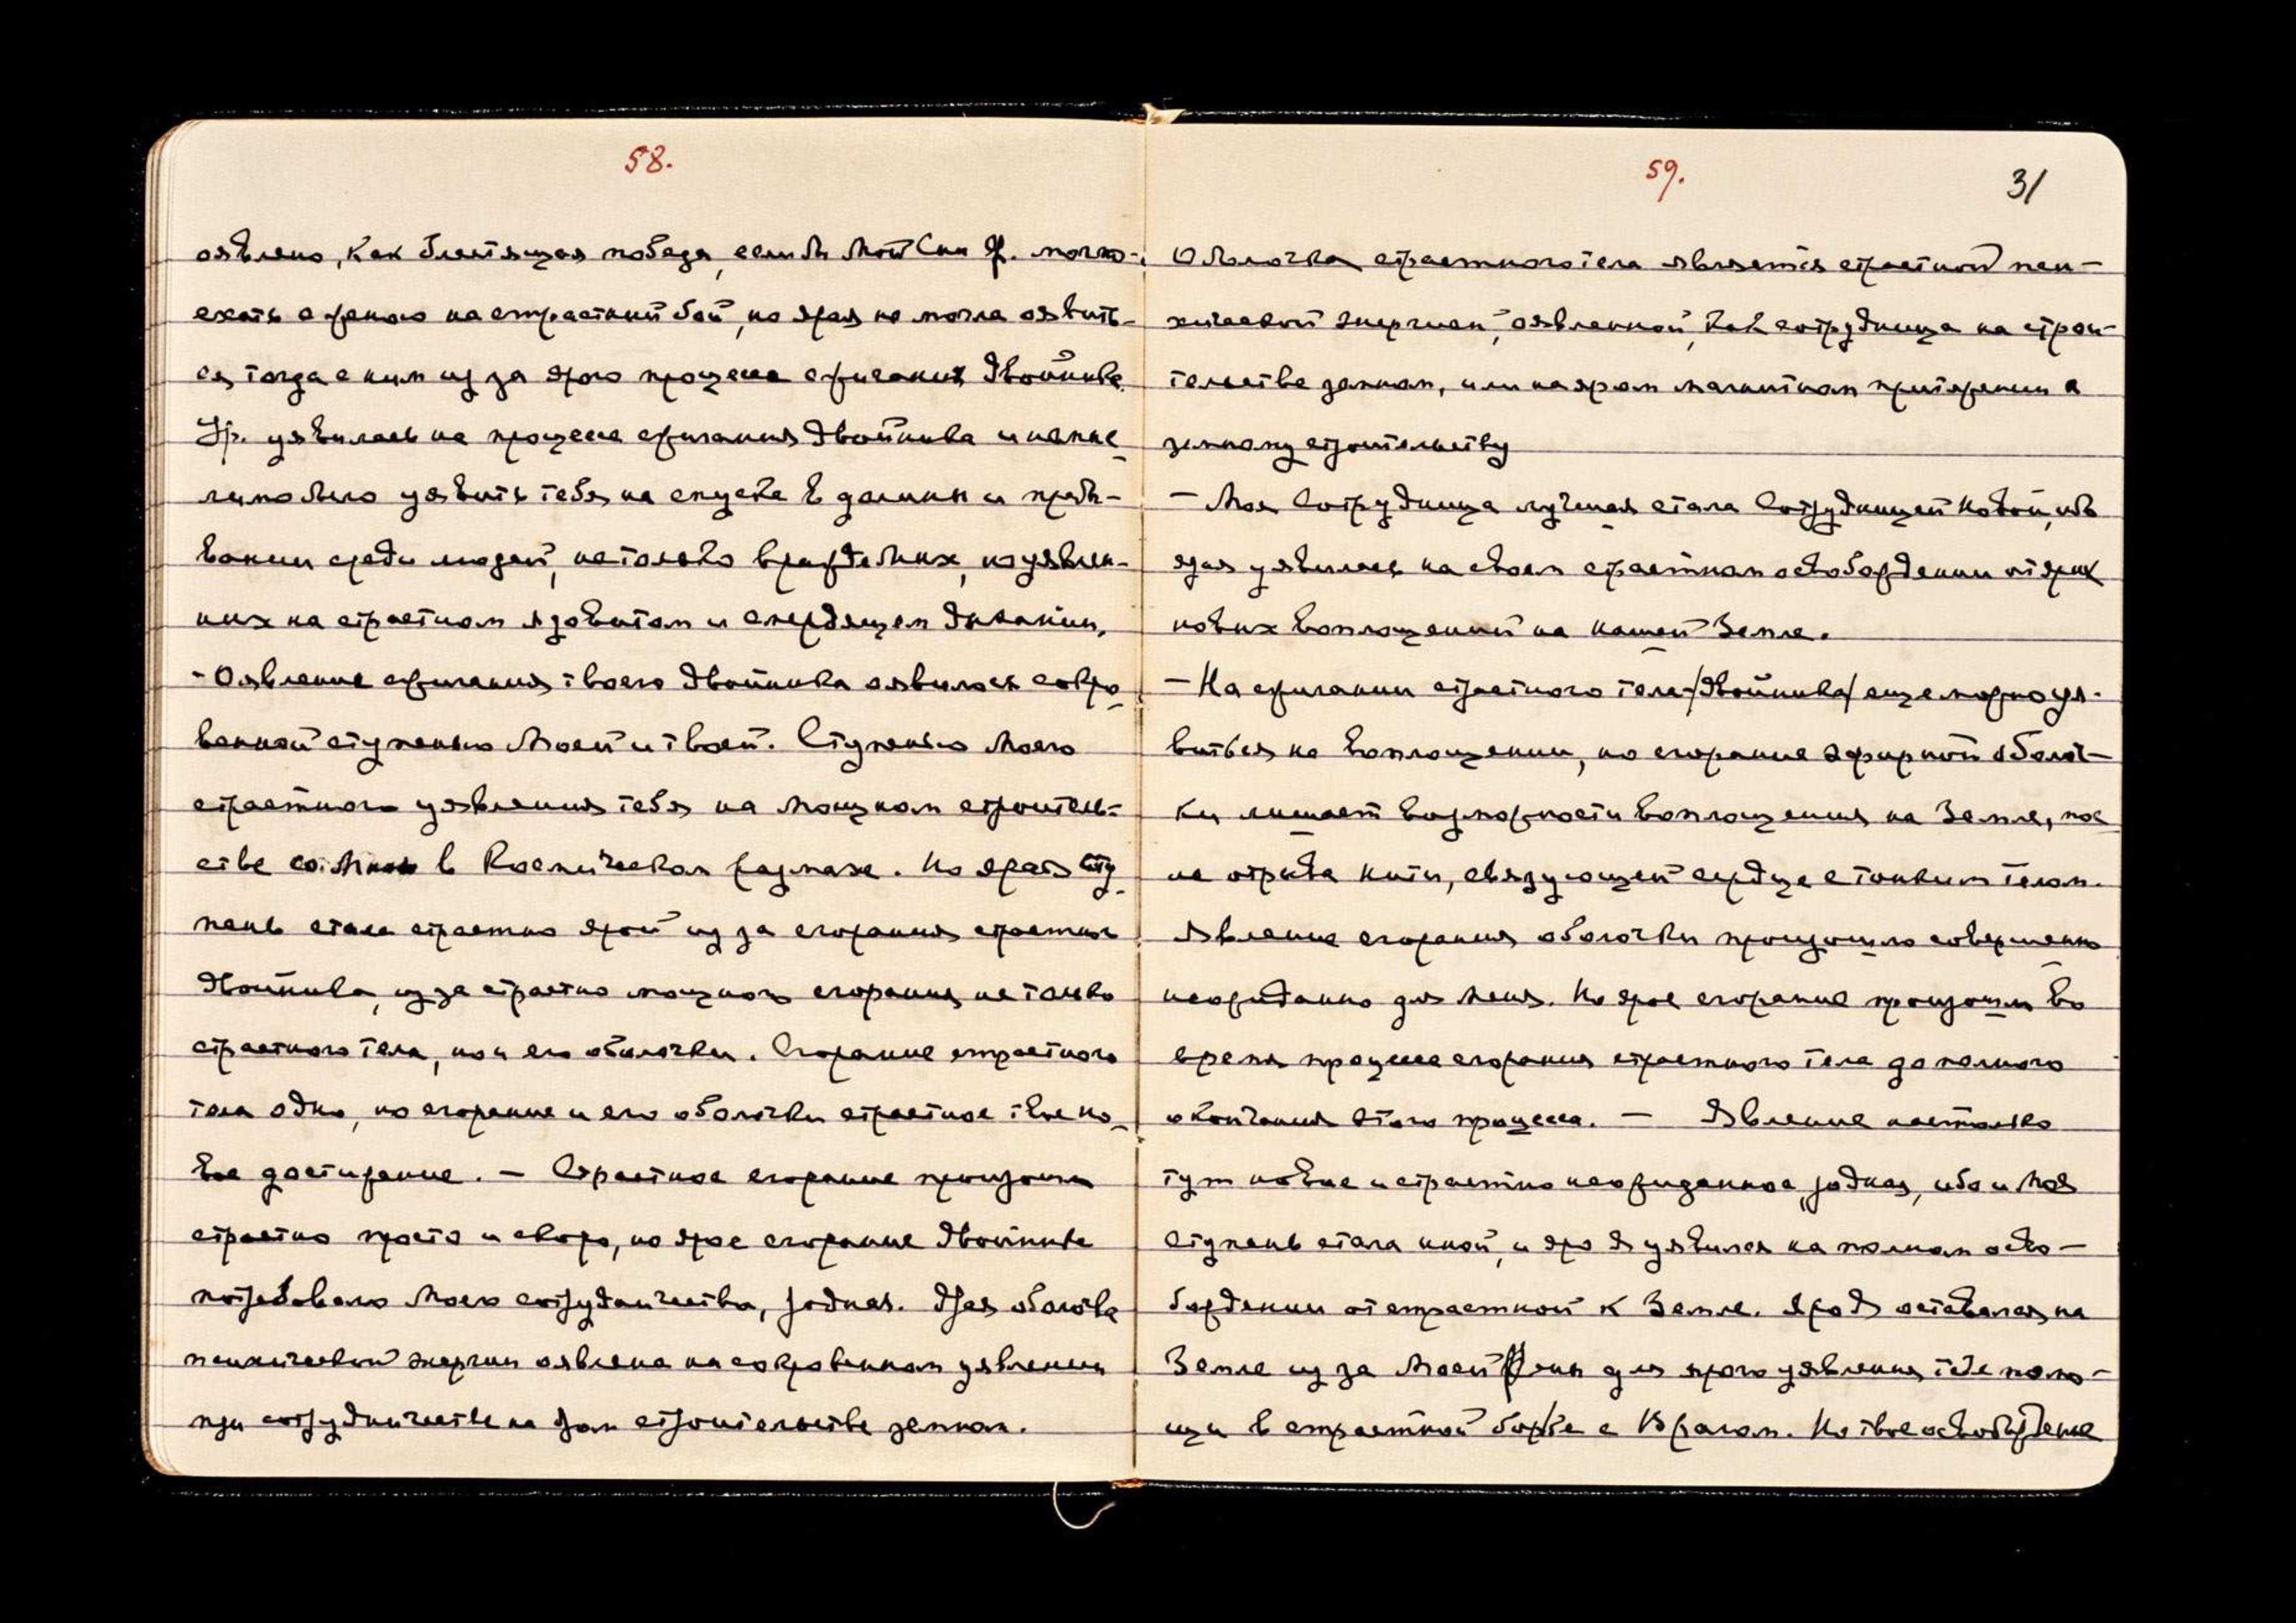 58.
оявлено, как блестящая победа, если бы Мой Сын Ю. мог по-
ехать с женою на страстный бой, но ярая не могла оявить-
ся тогда с ним из за ярого процесса сжигания двойника.
Ур. уявилась на процессе сжигания двойника и немыс
лимо было уявить тебя на спуске в долины и пребы-
вании среди людей, не только враждебных, но уявлен-
ных на страстном ядовитом и смердящем дыхании.
- Оявление сжигания твоего двойника оявилось сокро
венной ступенью Моей и твоей. Ступенью Моего
страстного уявления тебя на мощном строитель-
стве со Мною в Космическом размахе. Но ярая сту
пень стала страстно ярой из за сгорания страстного
двойника, из за страстно мощного сгорания не только
страстного тела, но и его оболочки. Сгорание страстного
тела одно, но сгорание и его оболочки страстное твое но
вое достижение. — Страстное сгорание произошло
страстно просто и скоро, но ярое сгорание двойника
потребовало Моего сотрудничества, родная. Ярая оболочка
психической энергии оявлена на сокровенном уявлении
при сотрудничестве на яром строительстве земном.
59.
31
Оболочка страстного тела является страстной пси-
хической энергией, оявленной, как сотрудница на строи-
тельстве земном, или на яром магнитном притяжении к
земному строительству
— Моя Сотрудница лучшая стала Сотрудницей новой, ибо
ярая уявилась на своем страстном освобождении от ярых
новых воплощений на нашей Земле.
— На сжигании страстного тела /двойника/ еще можно уя-
виться на воплощении, но сгорание эфирной оболоч-
ки лишает возможности воплощения на Земле, пос
ле отрыва нити, связующей сердце с тонким телом.
Явление сгорания оболочки произошло совершенно
неожиданно для Меня. Но ярое сгорание произошло во
время процесса сгорания страстного тела до полного
окончания этого процесса. — Явление настолько
тут новое и страстно неожиданное, родная, ибо и Моя
ступень стала иной, и яро Я уявился на полном осво-
бождении от страстной к Земле. Яро Я оставался на
Земле из за Моей Жены для ярого уявления тебе помо-
щи в страстной борьбе с Врагом. Но твое освобождение